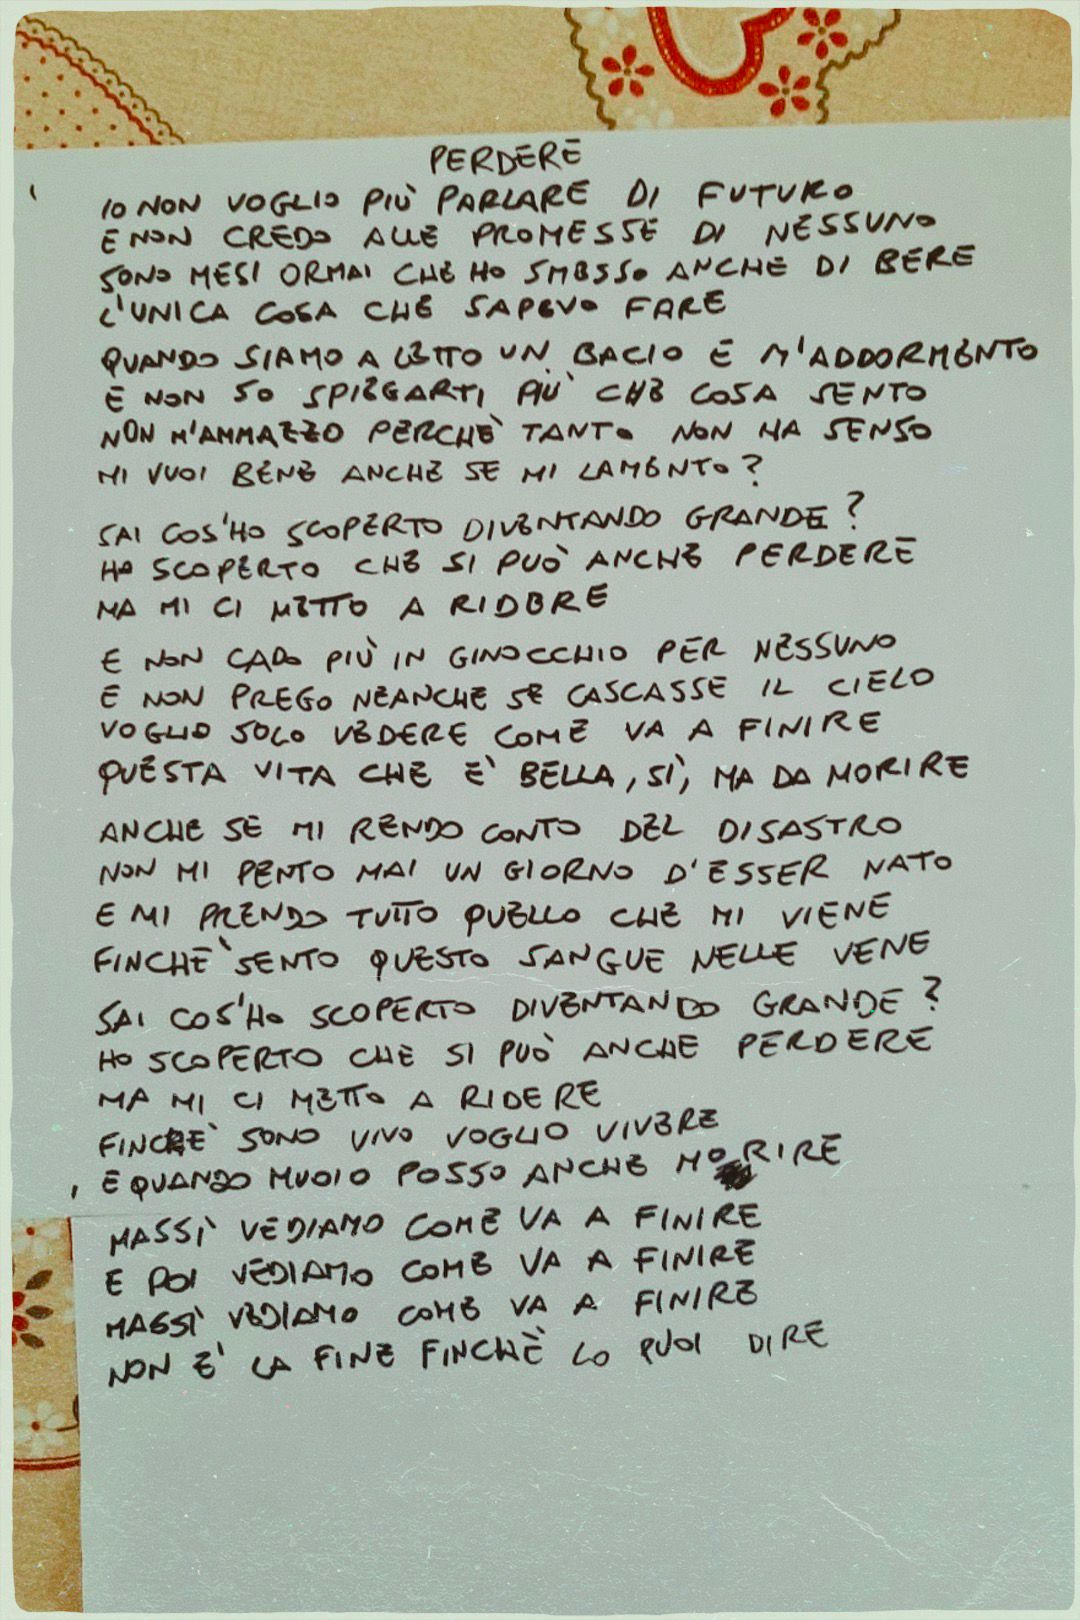 PERDERE
IO NON VOGLIO PIÙ PARLARE DI FUTURO
E NON CREDO ALLE PROMESSE DI NESSUNO
SONO MESI ORMAI CHE HO SMESSO ANCHE DI BERE
L'UNICA COSA CHE SAPEVO FARE
QUANDO SIAMO A LETTO UN BACIO E M'ADDORMENTO
E NON SO SPIEGARTI PIÙ CHE COSA SENTO
NON M'AMMAZZO PERCHÈ TANTO NON HA SENSO
MI VUOI BENE ANCHE SE MI LAMENTO?
SAI COS'HO SCOPERTO DIVENTANDO GRANDE?
HO SCOPERTO CHE SI PUÒ ANCHE PERDERE
MA MI CI METTO A RIDERE
E NON CADO PIÙ IN GINOCCHIO PER NESSUNO
E NON PREGO NEANCHE SE CASCASSE IL CIELO
VOGLIO SOLO VEDERE COME VA A FINIRE
QUESTA VITA CHE E' BELLA, SÌ, MA DA MORIRE
ANCHE SE MI RENDO CONTO DEL DISASTRO
NON MI PENTO MAI UN GIORNO D'ESSER NATO
E MI PRENDO TUTTO QUELLO CHE MI VIENE
FINCHE' SENTO QUESTO SANGUE NELLE VENE
SAI COS'HO SCOPERTO DIVENTANDO GRANDE?
HO SCOPERTO CHE SI PUÒ ANCHE PERDERE
MA MI CI METTO A RIDERE
FINCHE' SONO VIVO VOGLIO VIVERE
E QUANDO MUOIO POSSO ANCHE MORIRE
MASSÌ VEDIAMO COME VA A FINIRE
E POI VEDIAMO COME VA A FINIRE
MASSÌ VEDIAMO COME VA A FINIRE
NON E' LA FINE FINCHÈ LO PUOI DIRE